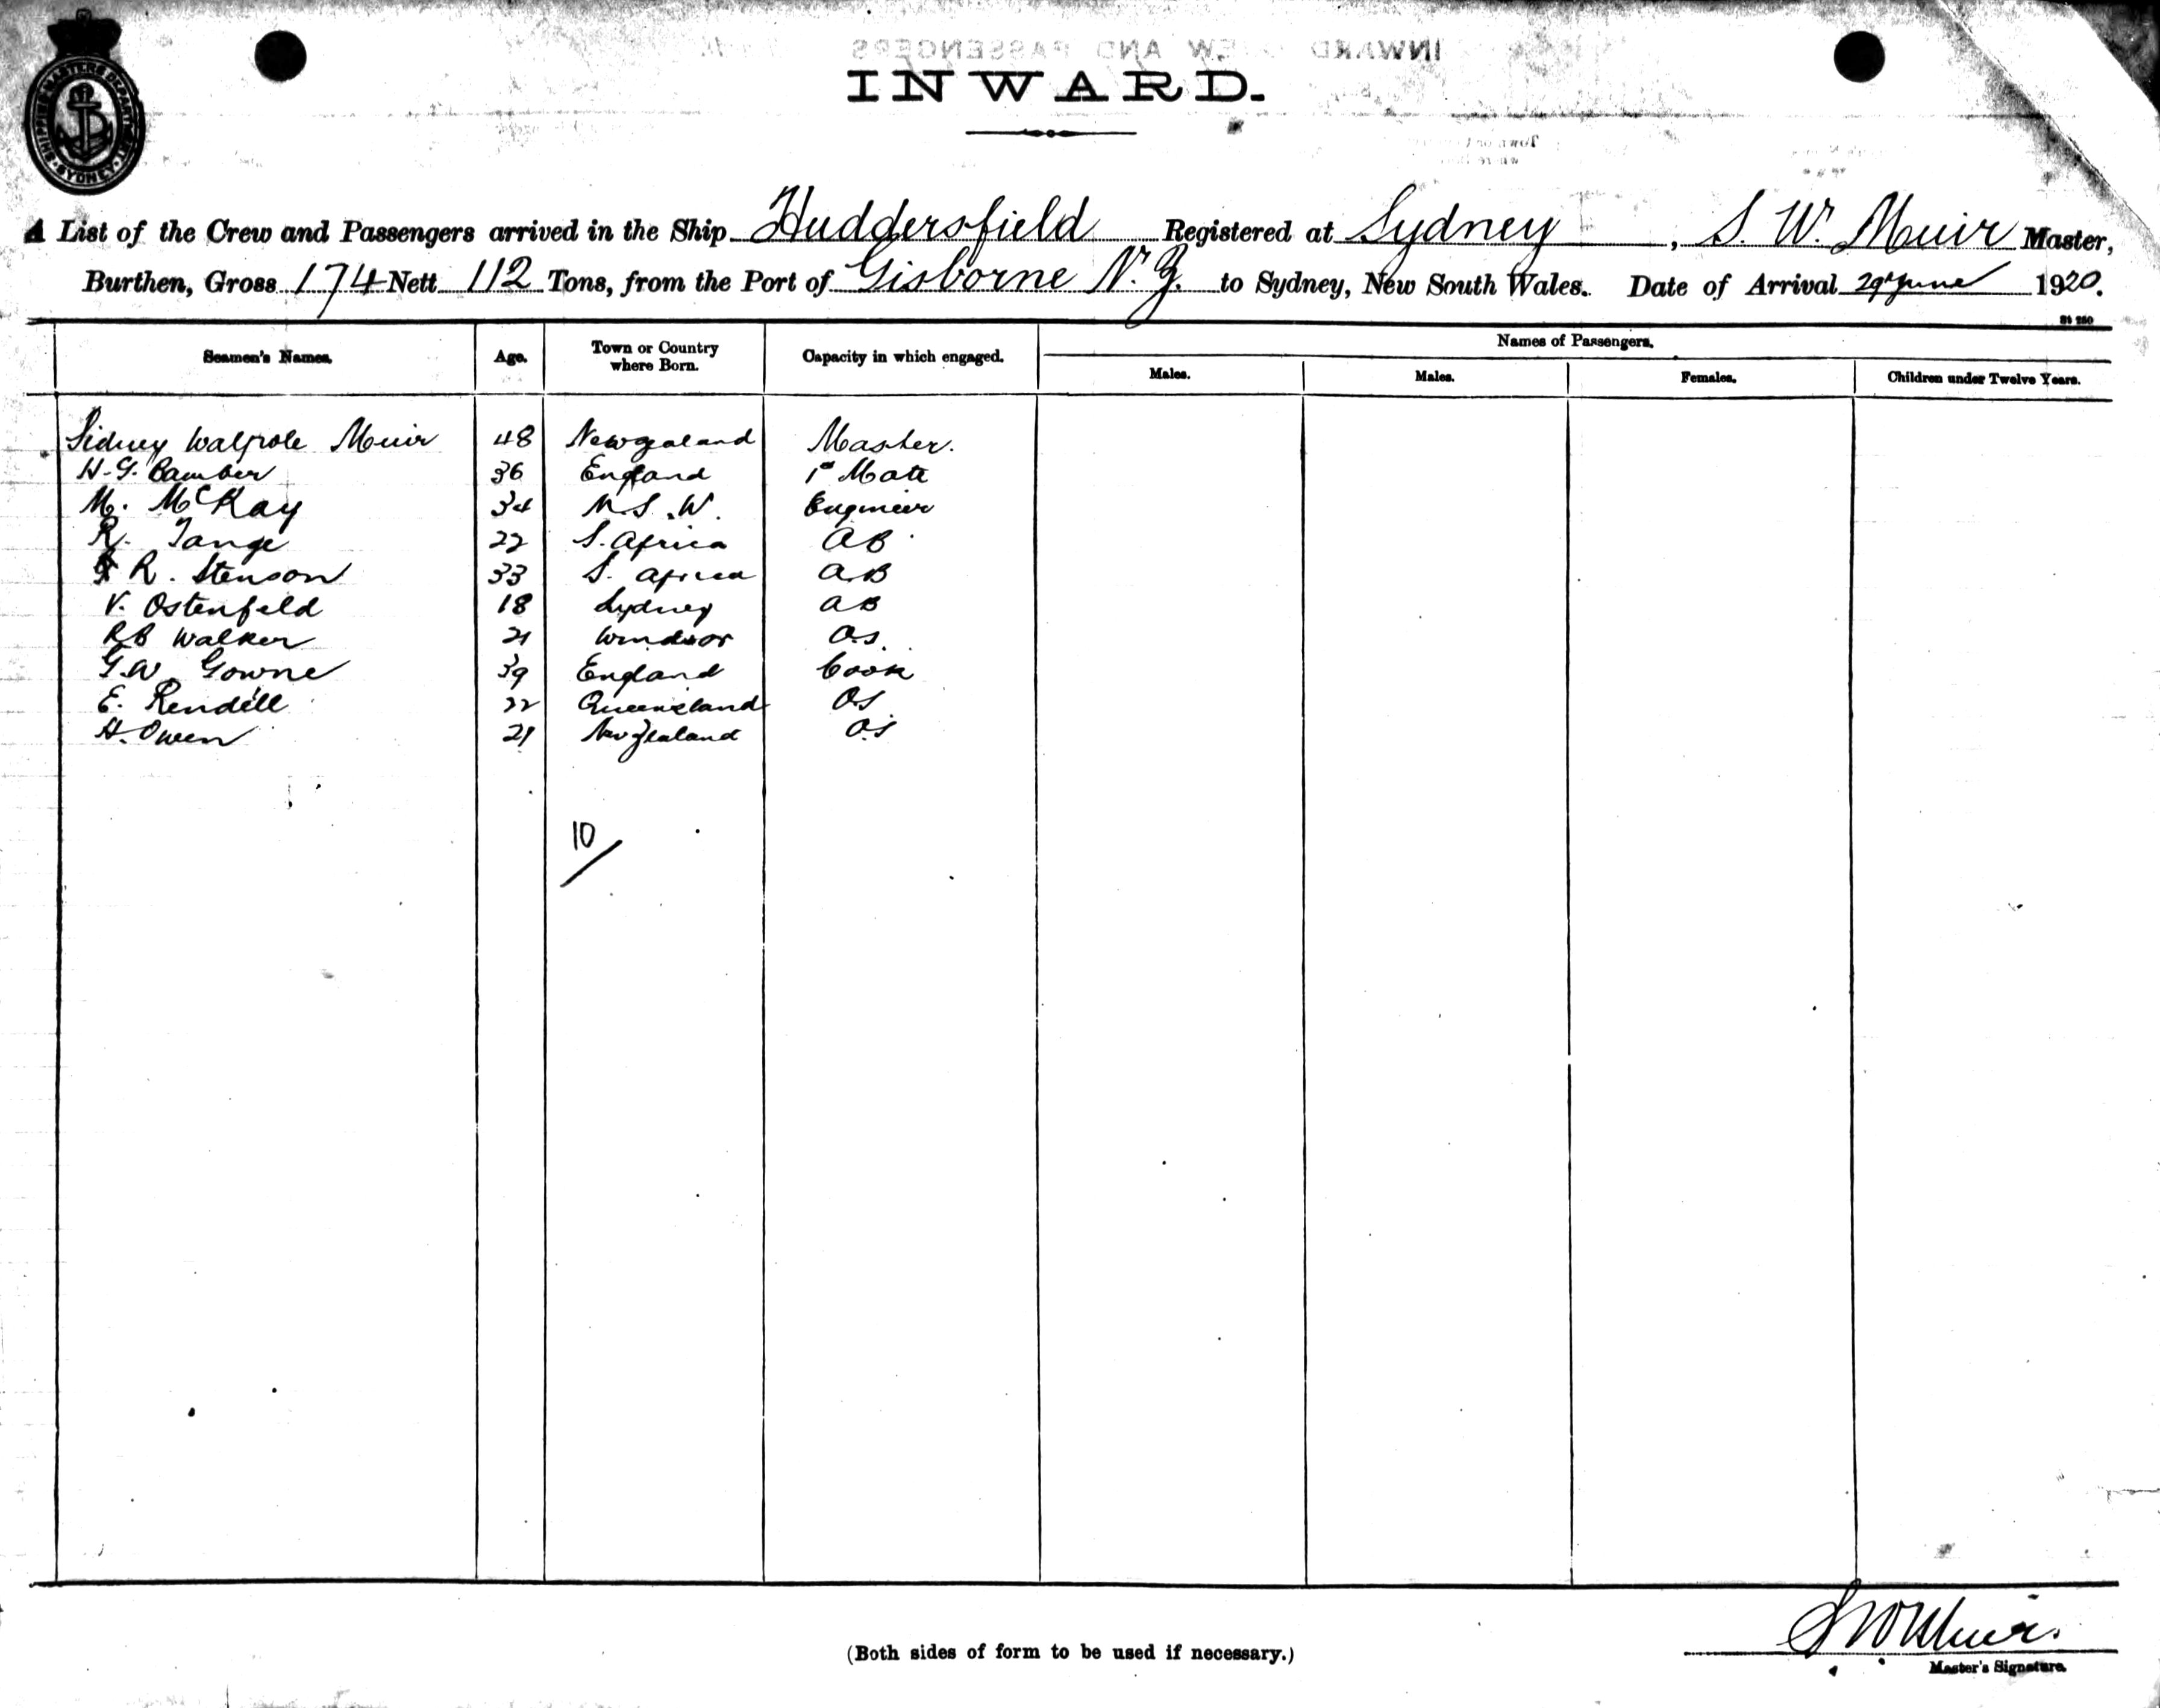 SHIPPING MASTERS DEPARTMENT SYDNEY
INWARD.
A List of the Crew and Passengers arrived in the Ship Huddersfield Registered at Sydney, S. W. Muir Master,
Burthen, Gross 174 Nett 112 Tons, from the Port of Gisborne N.Z. to Sydney, New South Wales. Date of Arrival 29th June 1920.
St 250
Seamen's Names. Age. Town or Country where Born. Capacity in which engaged. Names of Passengers.
Males. Males. Females. Children under Twelve Years.
Sidney Walpole Muir 48 New Zealand Master.
H. G. Bamber 36 England 1st Mate
M. McKay 34 N.S.W. Engineer
R. Tange 22 S. Africa AB
R. Stenson 33 S. Africa AB
V. Ostenfeld 18 Sydney AB
RB Walker 21 Windsor OS.
G.W. Gowne 39 England Cook
E. Rendell 22 Queensland OS
H. Owen 21 New Zealand OS
10/
S W Muir.
(Both sides of form to be used if necessary.)
Master's Signature.